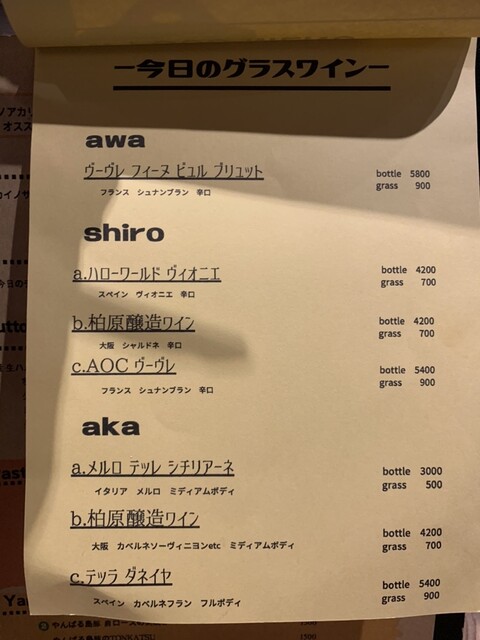 ー今日のグラスワインー
awa
ヴーヴレ フィーヌ ビュル ブリュット
bottle 5800
フランス シュナンブラン 辛口
grass 900
shiro
a.ハローワールド ヴィオニエ
bottle 4200
スペイン ヴィオニエ 辛口
grass 700
b.柏原醸造ワイン
bottle 4200
大阪 シャルドネ 辛口
grass 700
c.AOC ヴーヴレ
bottle 5400
フランス シュナンブラン 辛口
grass 900
aka
a.メルロ テッレ シチリアーネ
bottle 3000
イタリア メルロ ミディアムボディ
grass 500
b.柏原醸造ワイン
bottle 4200
大阪 カベルネソーヴィニヨンetc ミディアムボディ
grass 700
c.テッラ ダネイヤ
bottle 5400
スペイン カベルネフラン フルボディ
grass 900